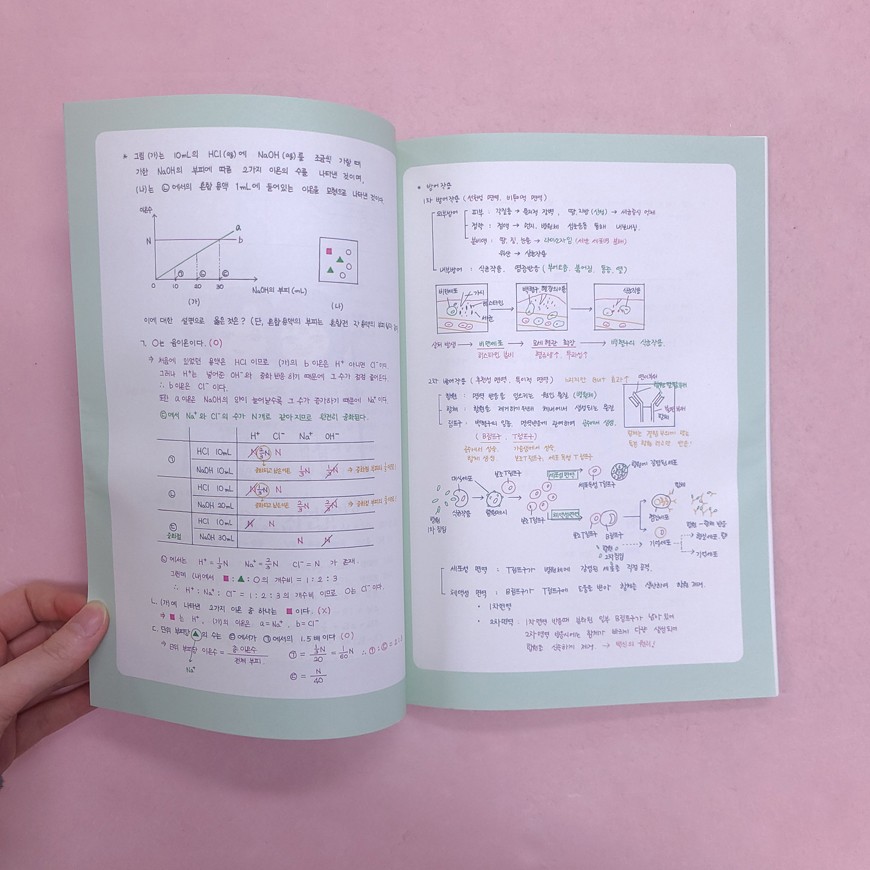 * 그림 (가)는 10mL의 HCl(aq)에 NaOH(aq)를 조금씩 가할 때
가한 NaOH의 부피에 따른 2가지 이온의 수를 나타낸 것이며,
(나)는 ⓒ에서의 혼합 용액 1mL에 들어있는 이온을 모형으로 나타낸 것이다.
이온수
N
a
b
0 10 20 30
NaOH의 부피 (mL)
(가)
(나)
이에 대한 설명으로 옳은 것은? (단, 혼합 용액의 부피는 혼합전 각 용액의 부피
ㄱ. O는 음이온이다. (O)
→ 처음에 있었던 용액은 HCl 이므로 (가)의 b 이온은 H⁺ 아니면 Cl⁻이다.
그러나 H⁺는 넣어준 OH⁻와 중화 반응하기 때문에 그 수가 점점 줄어든다.
∴ b이온은 Cl⁻이다.
또한 a이온은 NaOH의 양이 늘어날수록 그 수가 증가하기 때문에 Na⁺이다.
ⓒ에서 Na⁺와 Cl⁻의 수가 N개로 같아지므로 완전히 중화된다.
H⁺ Cl⁻ Na⁺ OH⁻
HCl 10mL N 2/3N N
NaOH 10mL 1/3N 1/3N
HCl 10mL N 1/3N N
NaOH 20mL 2/3N 2/3N
HCl 10mL N N
중화점 NaOH 30mL N N
에서는 H⁺=1/3N Na⁺=2/3N Cl⁻=N 가 존재.
그런데 (나)에서 ■:▲:O의 개수비 = 1:2:3
→ H⁺:Na⁺:Cl⁻ = 1:2:3의 개수비 이므로 O는 Cl⁻이다.
ㄴ. (가)에 나타낸 2가지 이온 중 하나는 ■이다. (X)
→ ■는 H⁺, (가)의 이온은 a=Na⁺, b=Cl⁻
ㄷ. 단위 부피당 ▲의 수는 ⓒ에서가 ㉠에서의 1.5배이다 (O)
→ 단위 부피당 이온수 = 총 이온수/전체 부피
Na⁺
㉠ = 1/3N/20 = 1/60N
ⓒ = N/40
* 방어작용
1차 방어작용 (선천성 면역, 비특이적 면역)
외부방어
피부 : 각질층 → 물리적 장벽,
점막 : 점액 →
분비액 : 땀, 침, 눈물 → 라이소자임
위산 → 살균작용
내부방어 : 식균작용, 염증반응 (부어오름, 붉어짐, 통증, 열)
비만세포
가시
히스타민
세균
백혈구
식균작용
상처 발생 → 비만세포 → 모세혈관 확장 → 백혈구의 식균작용
히스타민 분비
혈류량↑, 투과성↑
2차 방어작용 (후천성 면역, 특이적 면역)
항원 : 면역 반응을 일으키는 원인 물질 (병원체)
항체 : 항원을 제거하기 위해 체내에서 생성되는 물질
림프구 : 백혈구의 일종, 면역반응에 관여하며 골수에서 생성
(B림프구, T림프구)
골수에서 성숙
가슴샘에서 성숙
항체 생성
보조T림프구, 세포독성 T림프구
대식세포
항원
1차 침입
식균작용
항원제시
보조T림프구
세포성면역
체액성면역
세포독성T림프구
보조 T림프구
B림프구
항원
2차 침입
형질세포
기억세포
항체
기억세포
세포성 면역 : T림프구가 병원체에 감염된 세포를 직접 공격
체액성 면역 : B림프구가 T림프구에 도움을 받아 항체를 생산하여 항원 제거.
• 1차면역
• 2차면역 : 1차면역 반응때 분화된 일부 B림프구가 남아 있어
2차면역 반응시에는 항체가 빠르게 다량 생산되어
항원을 신속하게 제거. → 백신의 원리!